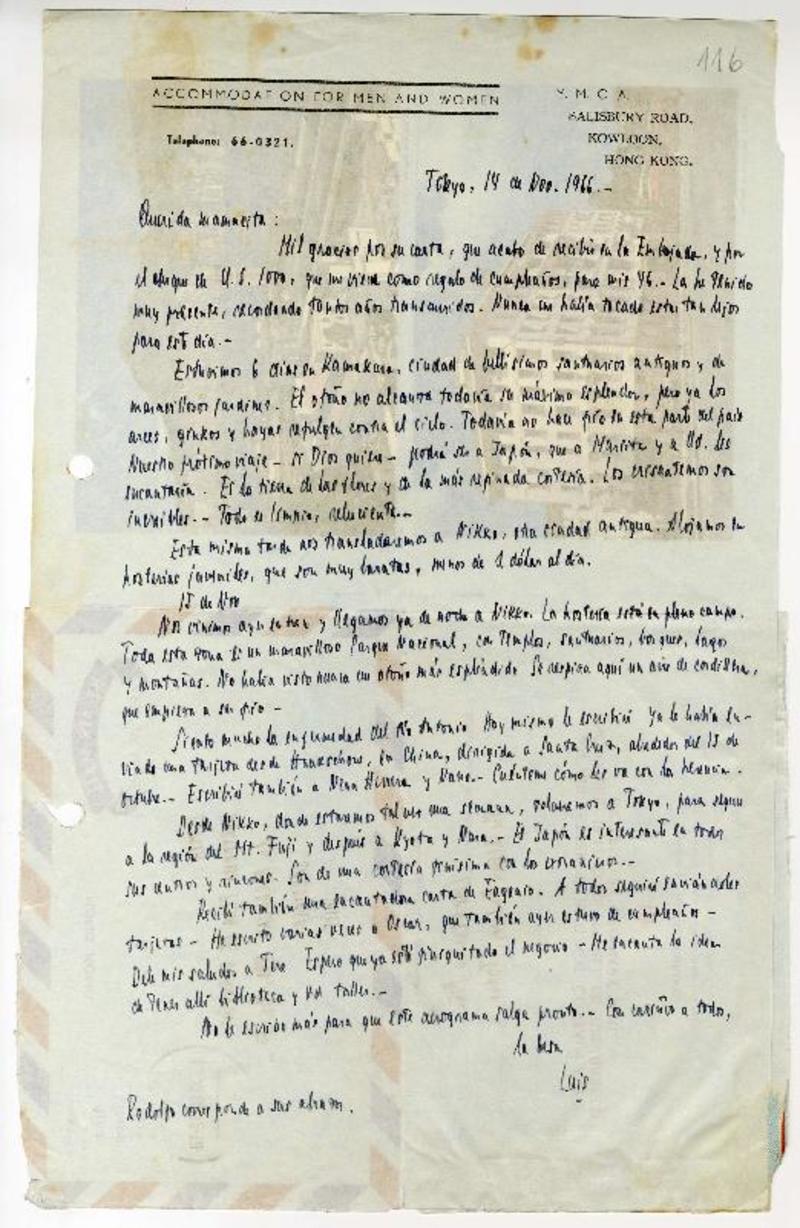 116
ACCOMMODATION FOR MEN AND WOMEN
Y. M. C. A.
SALISBURY ROAD,
KOWLOON,
HONG KONG.
Telephone: 66-0321.
Tokyo, 14 de Nov. 1966.-
Querida mamacita:
Mil gracias por su carta, que acabo de recibir en la Embajada, y por
el cheque de U.S. 1000, que me viene como regalo de cumpleaños, para mis 46.- La he tenido
muy presente, recordando tantos años transcurridos. Nunca me había tocado estar tan lejos
para este día.-
Estuvimos 6 días en Kamakura, ciudad de bellísimos santuarios antiguos y de
maravillosos jardines. El otoño no alcanza todavía su máximo esplendor, pero ya los
arces, ginkos y hayas refulgen contra el cielo. Todavía no hace frío en esta parte del país
Nuestro próximo viaje - si Dios quiere - podrá ser a Japón, que a Marcita y a Ud. les
encantaría. Es la tierra de las flores y de la más refinada cortesía. Los crisantemos son
increíbles.- Todo es limpio, reluciente.-
Esta misma tarde nos trasladaremos a Nikko, otra ciudad antigua. Alojamos en
hosterías juveniles, que son muy baratas, menos de 1 dólar al día.
15 de Nov
Nos vinimos ayer en tren y llegamos ya de noche a Nikko. La hostería está en pleno campo.
Toda esta zona es un maravilloso Parque Nacional, con templos, santuarios, bosques, lagos
y montañas. No había visto nunca un otoño más espléndido Se respira aquí un aire de cordillera,
que empieza a ser frío -
Siento mucho la enfermedad del Antonio Hoy mismo le escribiré Ya le había en-
viado una tarjeta desde Hangchow, en China, dirigida a Santa Cruz, alrededor del 15 de
octubre.- Escribiré también a Nena Herrera y Nano.- Cuénteme cómo les va con la herencia.
Desde Nikko, donde estaremos tal vez una semana, volveremos a Tokyo, para seguir
a la región del Mt. Fuji y después a Kyoto y Nara.- El Japón es interesante en todos
sus rincones. Son de una cortesía finísima con los extranjeros.-
Recibí también una encantadora carta de Eugenio. A todos seguiré enviándoles
tarjetas - He escrito varias veces a Oscar, que también ayer estuvo de cumpleaños -
Dele mis saludos a Tere Espero que ya esté finiquitado el negocio - Me encanta la idea
de tener allí biblioteca y Ud taller.-
No le escribo más para que este aerograma salga pronto.- Con cariño a todos,
la besa
Luis
Rodolfo corresponde a sus abrazos.